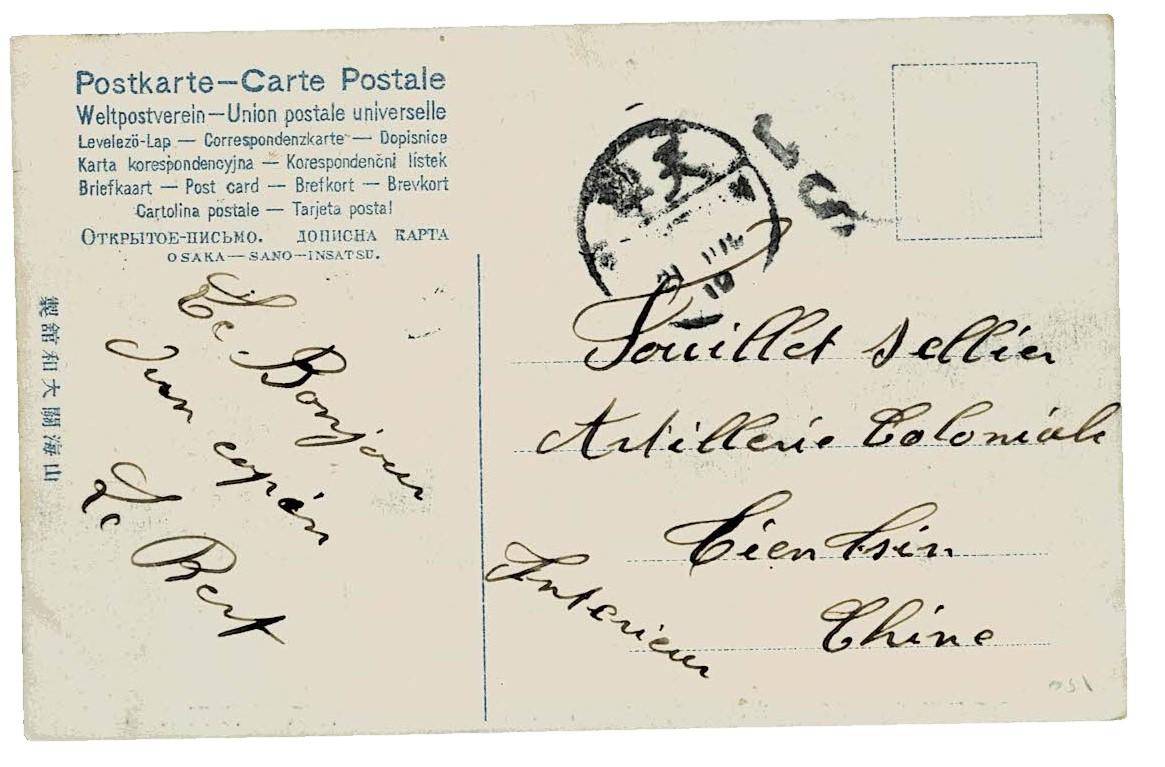 Postkarte—Carte Postale
Weltpostverein—Union postale universelle
Levelező-Lap — Correspondenzkarte — Dopisnice
Karta korespondencyjna — Korespondenčni listek
Briefkaart — Post card — Brefkort — Brevkort
Cartolina postale — Tarjeta postal
ОТКРЫТОЕ-ПИСЬМО. ДОПИСНА КАРТА
OSAKA—SANO-INSATSU.
製館和大關海山
Le Bonjour
d'un copin
Le Bert
天
Souillet Sellier
Artillerie Coloniale
Tientsin
Chine
Interieur